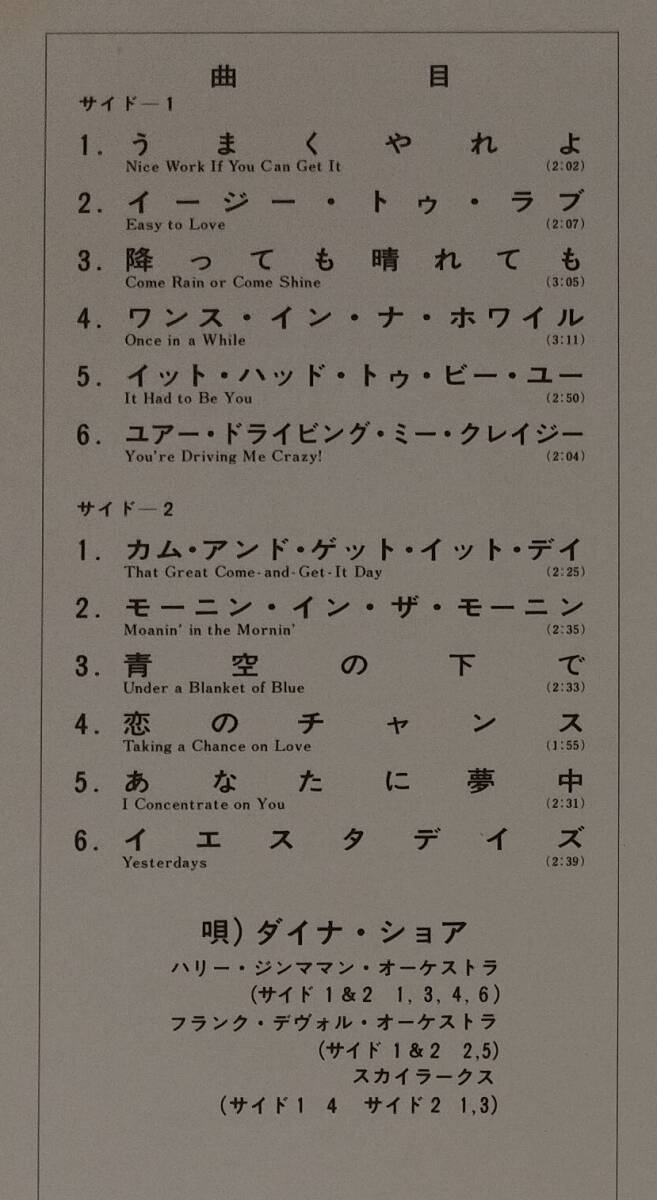 曲目
サイド—1
1. うまくやれよ
Nice Work If You Can Get It (2:02)
2. イージー・トゥ・ラブ
Easy to Love (2:07)
3. 降っても晴れても
Come Rain or Come Shine (3:05)
4. ワンス・イン・ナ・ホワイル
Once in a While (3:11)
5. イット・ハッド・トゥ・ビー・ユー
It Had to Be You (2:50)
6. ユアー・ドライビング・ミー・クレイジー
You're Driving Me Crazy! (2:04)
サイド—2
1. カム・アンド・ゲット・イット・デイ
That Great Come-and-Get-It Day (2:25)
2. モーニン・イン・ザ・モーニン
Moanin' in the Mornin' (2:35)
3. 青空の下で
Under a Blanket of Blue (2:33)
4. 恋のチャンス
Taking a Chance on Love (1:55)
5. あなたに夢中
I Concentrate on You (2:31)
6. イエスタデイズ
Yesterdays (2:39)
唄) ダイナ・ショア
ハリー・ジンママン・オーケストラ
(サイド1&2 1, 3, 4, 6)
フランク・デヴォル・オーケストラ
(サイド1&2 2,5)
スカイラークス
(サイド1 4 サイド2 1,3)